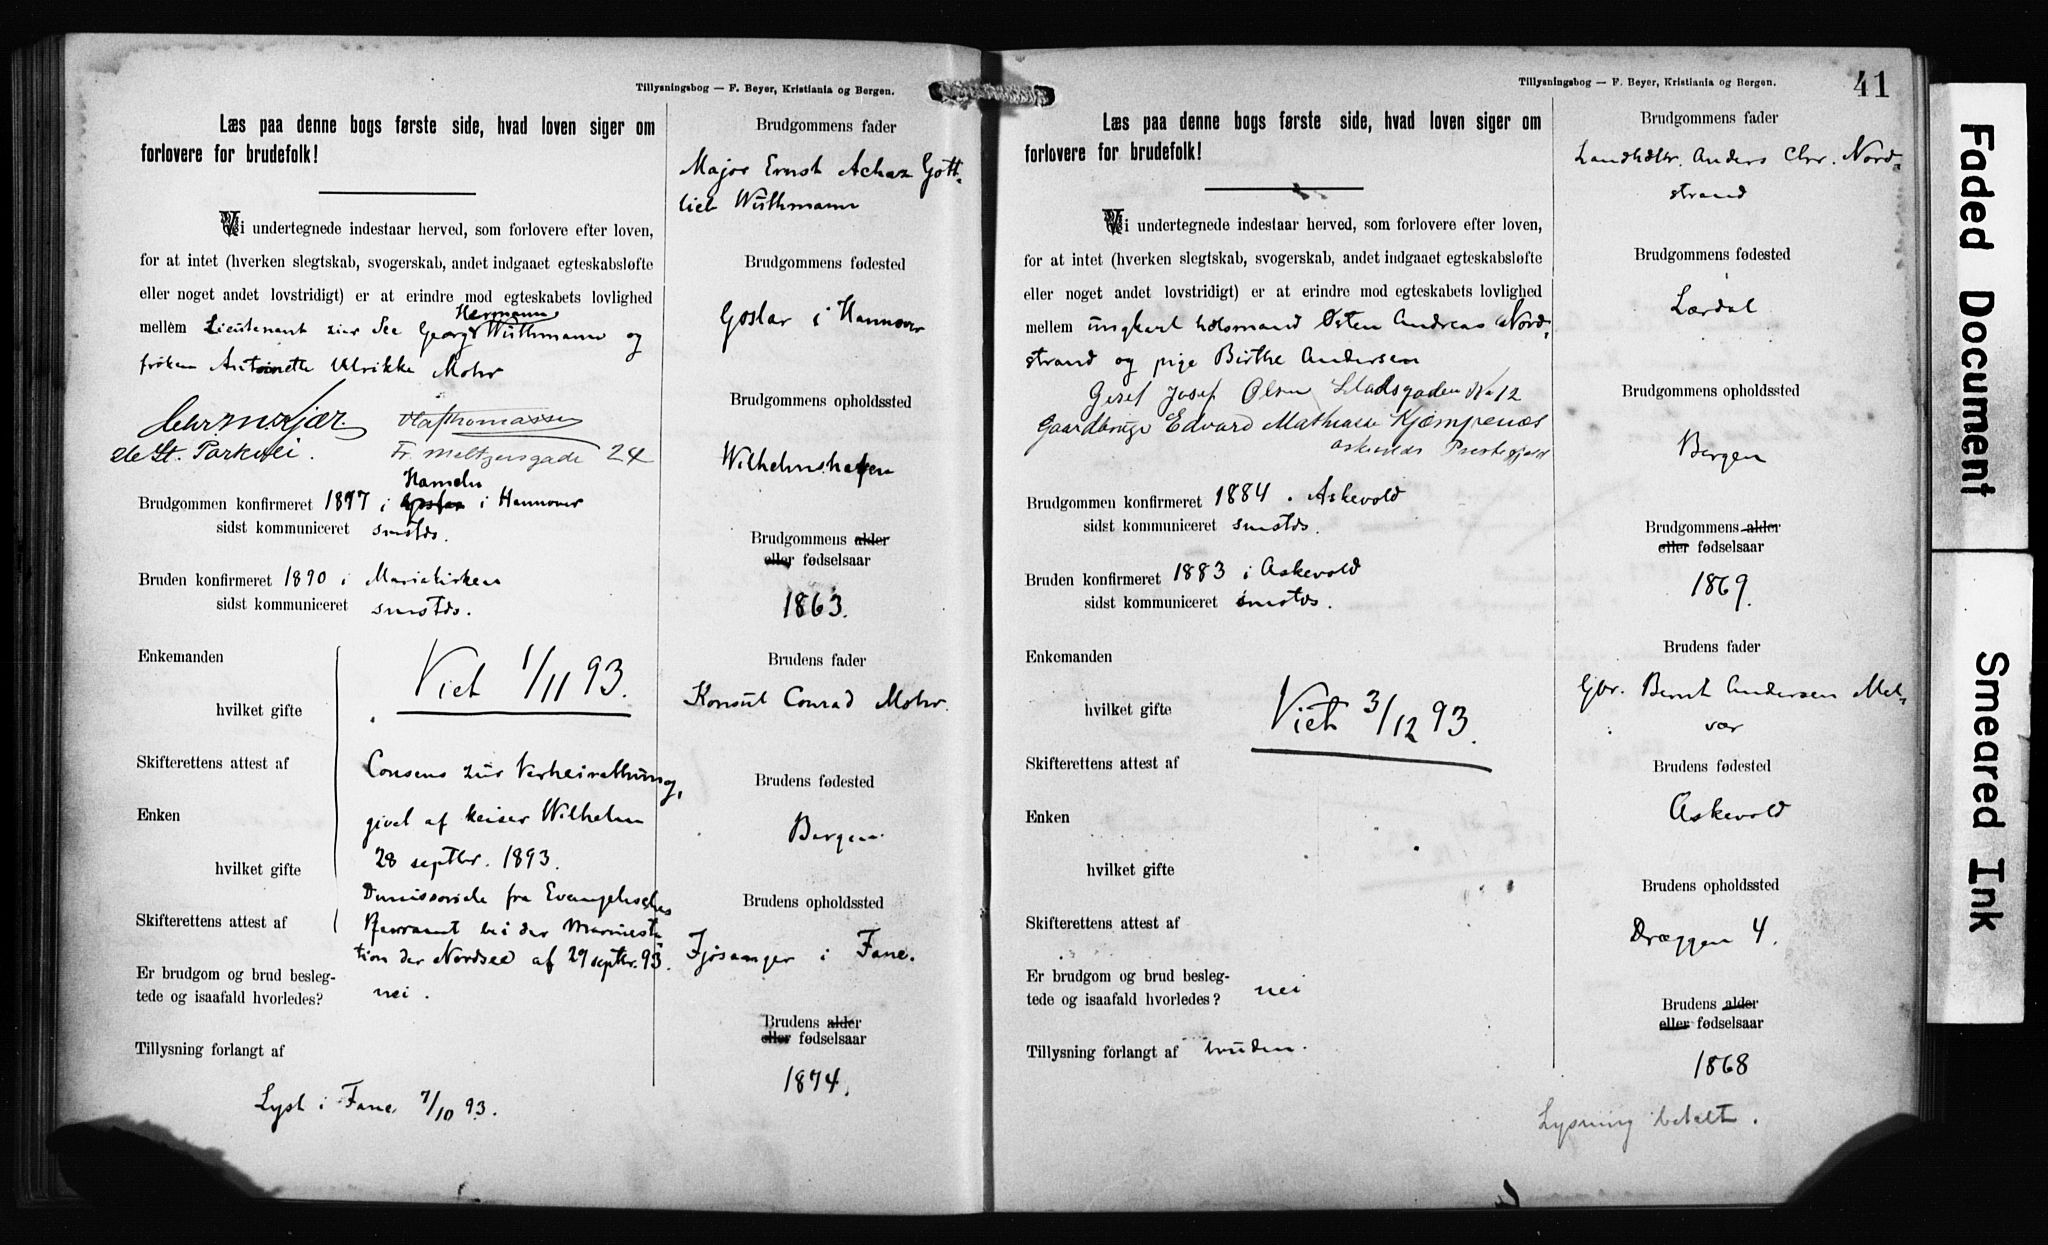 Tillysningsbog — F. Beyer, Kristiania og Bergen.
Læs paa denne bogs første side, hvad loven siger om
forlovere for brudefolk!
Vi undertegnede indestaar herved, som forlovere efter loven,
for at intet (hverken slegtskab, svogerskab, andet indgaaet egteskabsløfte
eller noget andet lovstridigt) er at erindre mod egteskabets lovlighed
Hermann
mellem Lieutenant zur See Georg Wuthmann og
frøken Antoinette Ulrikke Mohr
Chr. M. Kjær. Olaf Thomassen
St. Parkvei. Fr. Meltzersgade 24
Hameln
Brudgommen konfirmeret 1877 i Goslar i Hannover
sidst kommuniceret smstds.
Bruden konfirmeret 1890 i Mariakirken
sidst kommuniceret smstds.
Enkemanden
Viet 1/11 93.
hvilket gifte
Skifterettens attest af
Consens zur Verheirathung,
Enken
givet af keiser Wilhelm
28 septbr. 1893.
hvilket gifte
Dimissoriale fra Evangelisches
Skifterettens attest af
Pfarramt bei der Marinesta
tion der Nordsee af 29 septbr. 93.
Er brudgom og brud besleg-
tede og isaafald hvorledes? nei.
Tillysning forlangt af
Lyst i Fane 7/10 93.
Brudgommens fader
Major Ernst Achaz Gott-
lieb Wuthmann
Brudgommens fødested
Goslar i Hannover
Brudgommens opholdssted
Wilhelmshafen
Brudgommens alder
eller fødselsaar
1863.
Brudens fader
Konsul Conrad Mohr.
Brudens fødested
Bergen.
Brudens opholdssted
Fjøsanger i Fane.
Brudens alder
eller fødselsaar
1874.
Tillysningsbog — F. Beyer, Kristiania og Bergen.
41
Læs paa denne bogs første side, hvad loven siger om
forlovere for brudefolk!
Vi undertegnede indestaar herved, som forlovere efter loven,
for at intet (hverken slegtskab, svogerskab, andet indgaaet egteskabsløfte
eller noget andet lovstridigt) er at erindre mod egteskabets lovlighed
mellem ungkarl losmand Østen Andreas Nord-
strand og pige Birthe Andersen
Gesel Josef Olsen Stadsgaden No 12
Gaardbruger Edvard Mathiasen Kjempenæs
Askevolds Prestegjeld
Brudgommen konfirmeret 1884. Askevold
sidst kommuniceret smstds.
Bruden konfirmeret 1883 i Askevold
sidst kommuniceret smstds.
Enkemanden
hvilket gifte
Viet 3/12 93.
Skifterettens attest af
Enken
hvilket gifte
Skifterettens attest af
Er brudgom og brud besleg-
tede og isaafald hvorledes? nei
Tillysning forlangt af bruden.
Brudgommens fader
Landhdlr. Anders Chr. Nord-
strand
Brudgommens fødested
Lærdal
Brudgommens opholdssted
Bergen
Brudgommens alder
eller fødselsaar
1869.
Brudens fader
Gbr. Bernt Andersen Mel-
vær
Brudens fødested
Askevold
Brudens opholdssted
Dræggen 4.
Brudens alder
eller fødselsaar
1868
Lysning betalt.
Faded Document
Smeared Ink